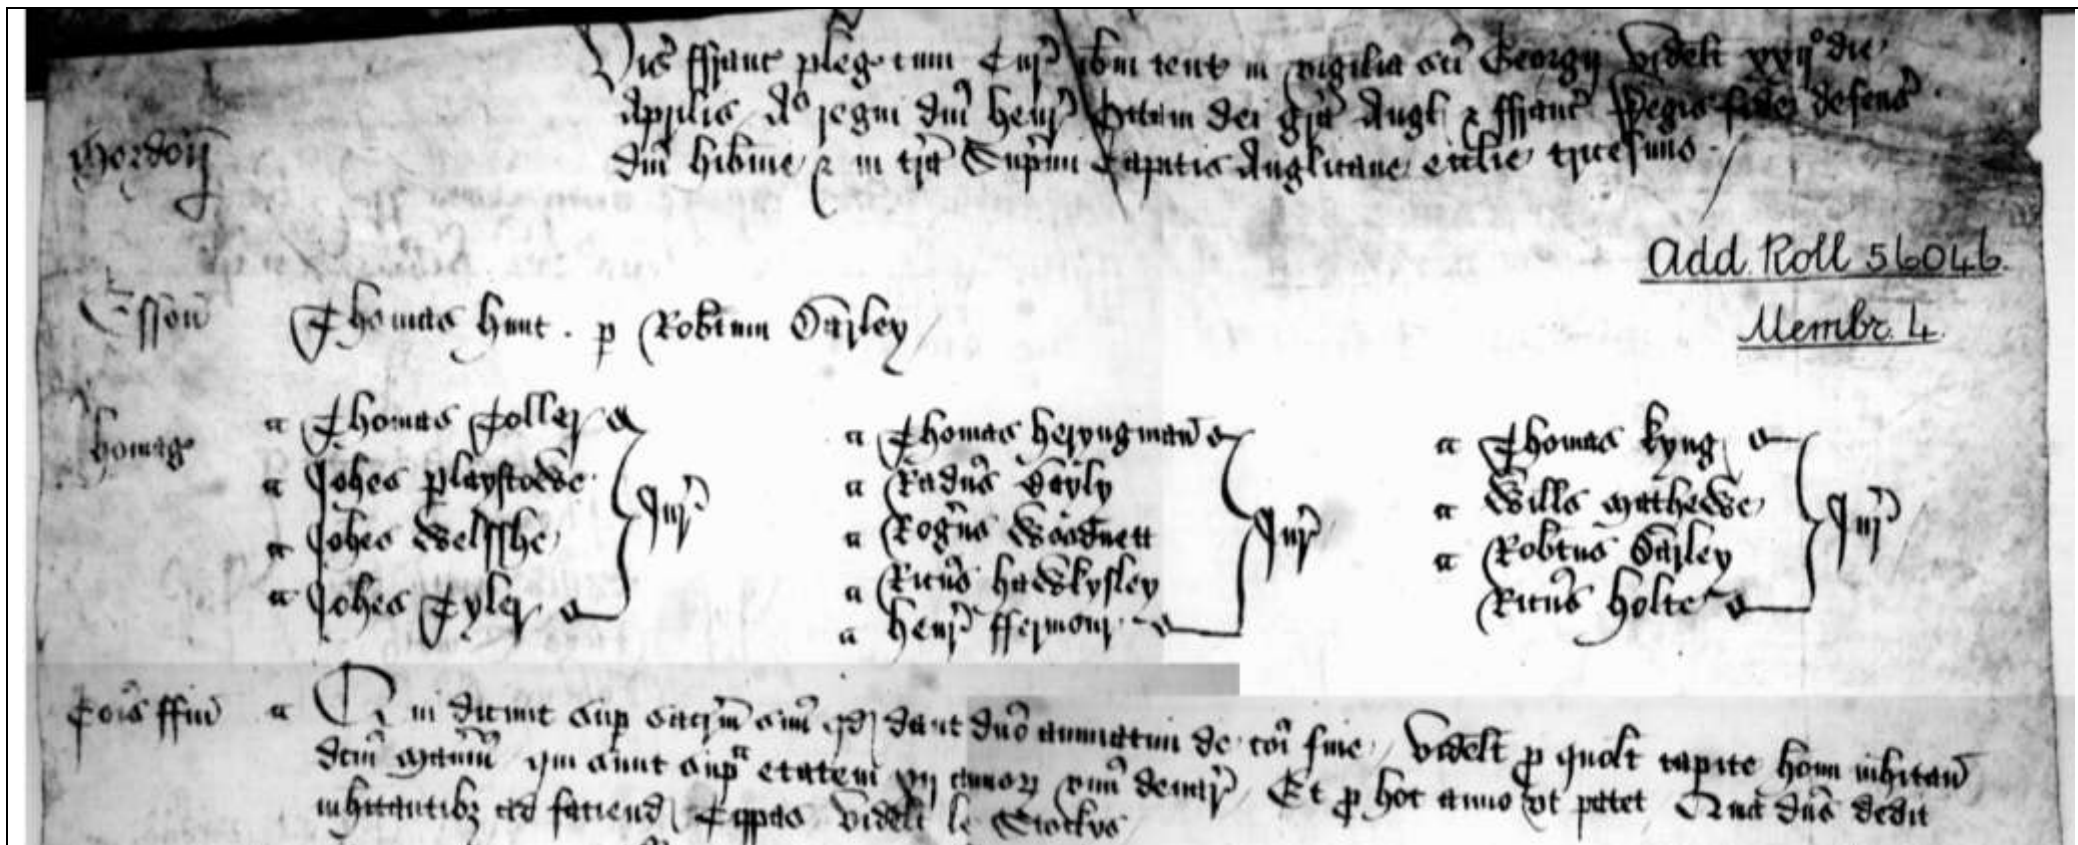 Vis ffranc pleg cum Cur ibm tent in vigilia sci Georgij videlt xxij° die
Aprilis A° regni dni Henr octavi dei gra Angl & ffranc Regis fidei defens
Mordon
dni hibnie & in tra Supmi Capitis Anglicane ecclie tricesimo
Add. Roll 56046.
Membr. 4.
Esson Thomas Hunt . p Robtum Carley
homag
a Thomas Toller
a Johes Playstowe
a Johes Welsshe
a Johes Tyler
Jur
a Thomas Heryngman
a Radus Bayly
a Rogus Woodnett
a Ricus Hawkysley
a Henr ffermor
Jur
a Thomas Kyng
a Wills Mathewe
a Robtus Carley
Ricus Holte
Jur
Cois ffin a Qui dicunt sup sacrm sum qd dant dno annuatim de coi fine videlt p quolt capite hom inhitan
dcm Manm qui sunt supa etatem xij annor unu denar Et p hoc anno ut patet Quia dns dedit
inhitantibz ad faciend Cippas videlt le Stockys